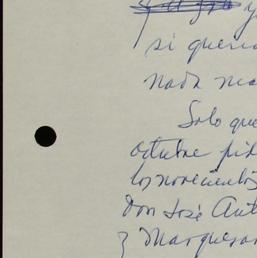 y
si queria
nada ma
Solo que
octubre pid
los novecientos
don José Ant
y Marquesa